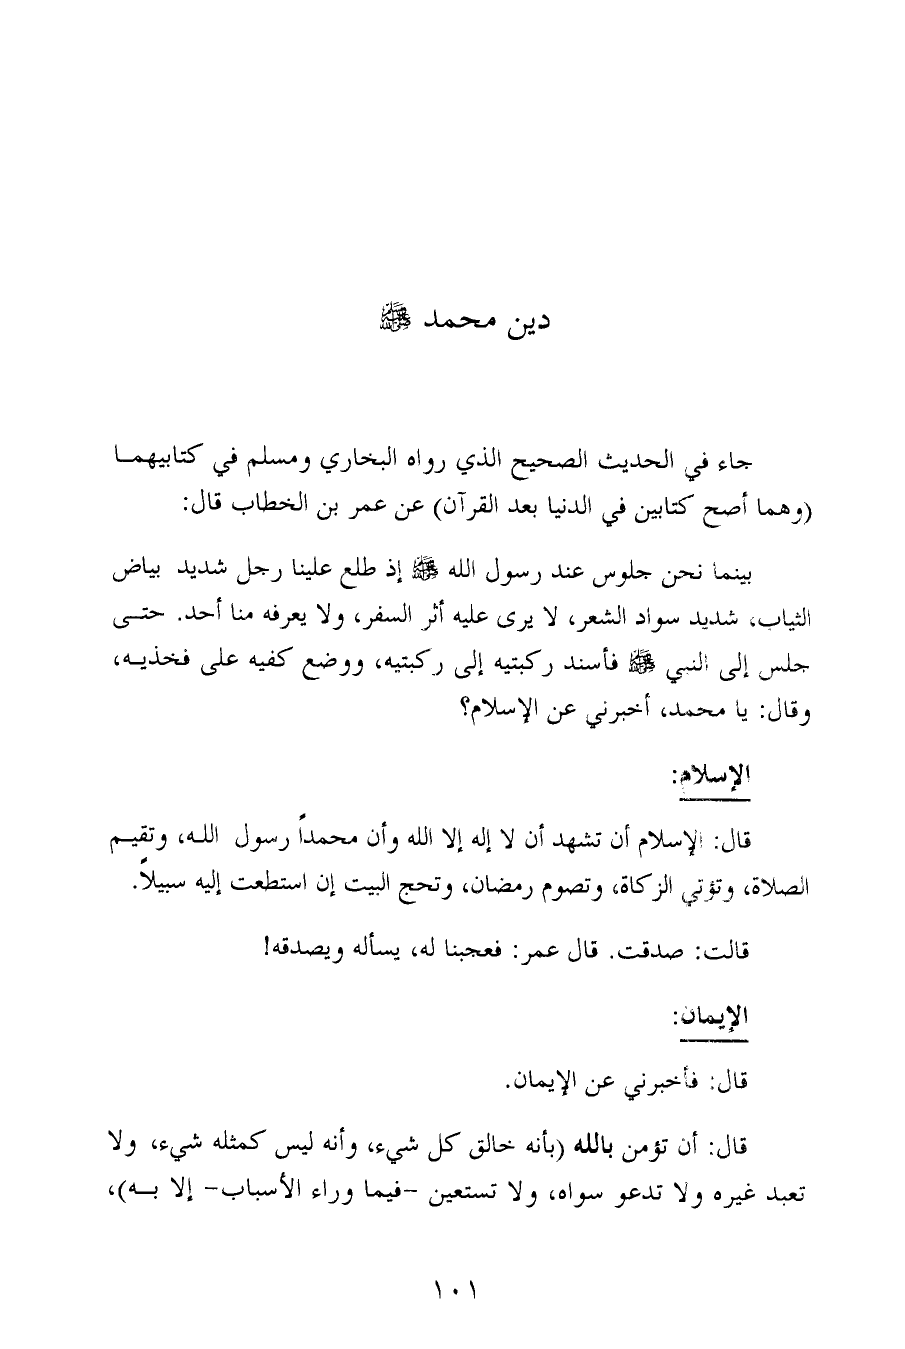 دين محمد ﷺ
جاء في الحديث الصحيح الذي رواه البخاري ومسلم في كتابيهما
(وهما أصح كتابين في الدنيا بعد القرآن) عن عمر بن الخطاب قال:
بينما نحن جلوس عند رسول الله ﷺ إذ طلع علينا رجل شديد بياض
الثياب، شديد سواد الشعر، لا يرى عليه أثر السفر، ولا يعرفه منا أحد. حتى
جلس إلى النبي ﷺ فأسند ركبتيه إلى ركبتيه، ووضع كفيه على فخذيه،
وقال: يا محمد، أخبرني عن الإسلام؟
الإسلام:
قال: الإسلام أن تشهد أن لا إله إلا الله وأن محمداً رسول الله، وتقيم
الصلاة، وتؤتي الزكاة، وتصوم رمضان، وتحج البيت إن استطعت إليه سبيلاً.
قالت: صدقت. قال عمر: فعجبنا له، يسأله ويصدقه!
الإيمان:
قال: فأخبرني عن الإيمان.
قال: أن تؤمن بالله (بأنه خالق كل شيء، وأنه ليس كمثله شيء، ولا
تعبد غيره ولا تدعو سواه، ولا تستعين -فيما وراء الأسباب- إلا به)،
١٠١